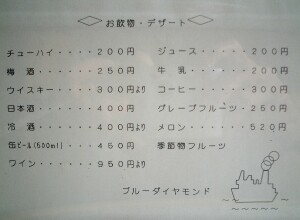 お飲物・デザート
チューハイ・・・・・200円
梅 酒・・・・・250円
ウイスキー・・・・300円より
日本酒・・・・・400円より
冷 酒・・・・・400円より
缶ビール(500ml)・・・・450円
ワイン・・・・・950円より
ジュース・・・・・200円
牛 乳・・・・・200円
コーヒー・・・・・300円
グレープフルーツ・250円
メロン・・・・・520円
季節物フルーツ
ブルーダイヤモンド